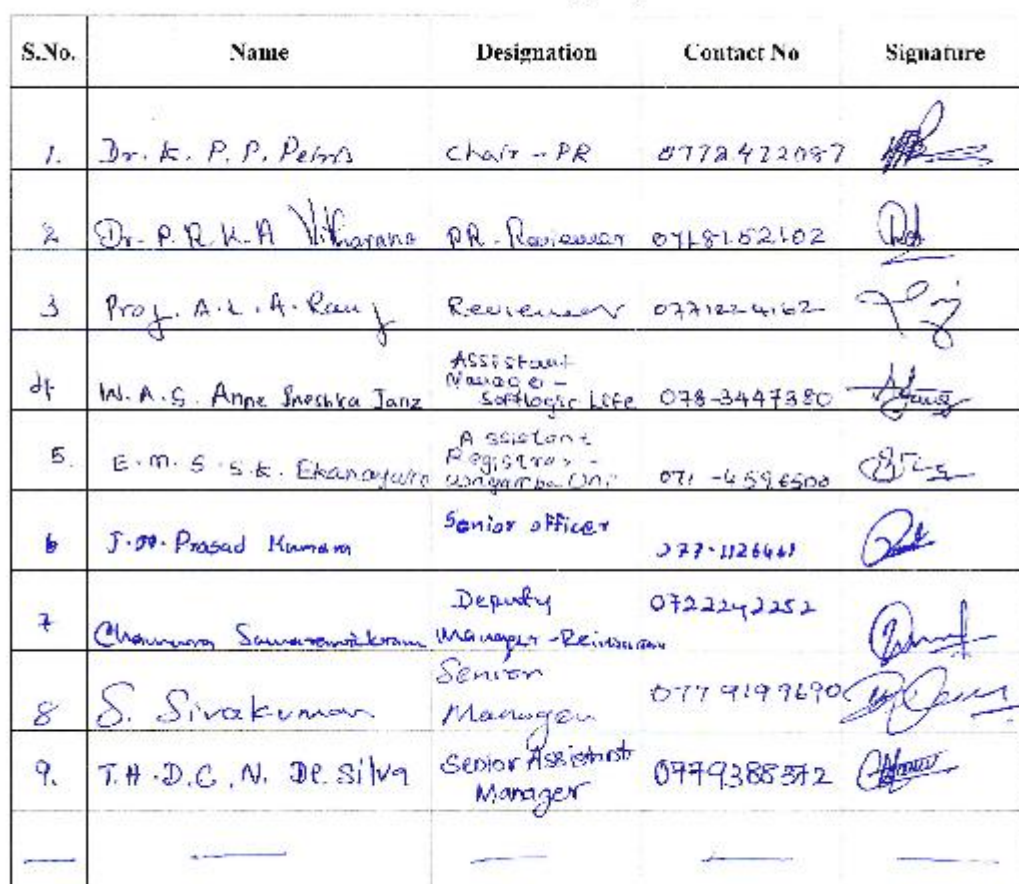 S.No. Name Designation Contact No Signature
1. Dr. K. P. P. Peiris Chair - PR 0772472087
2 Dr. P. R. K. A Vitharana PR - Reviewer 0718152102
3 Prof. A. L. A. Rauf Reviewer 0771224162
4 W. A. S. Anne Ineshka Janz Assistant
Manager -
Softlogic Life 078-3447380
5. E. M. S. S. K. Ekanayake Assistant
Registrar -
Wayamba Uni 071 - 4596500
6 Prasad Kumara Senior officer
7 Deputy
Manager - Reinsurance 0722242252
8 S. Sivakumar Senior
Manager 0779199690
9. T. H. D. C. N. De Silva Senior Assistant
Manager 0779388572